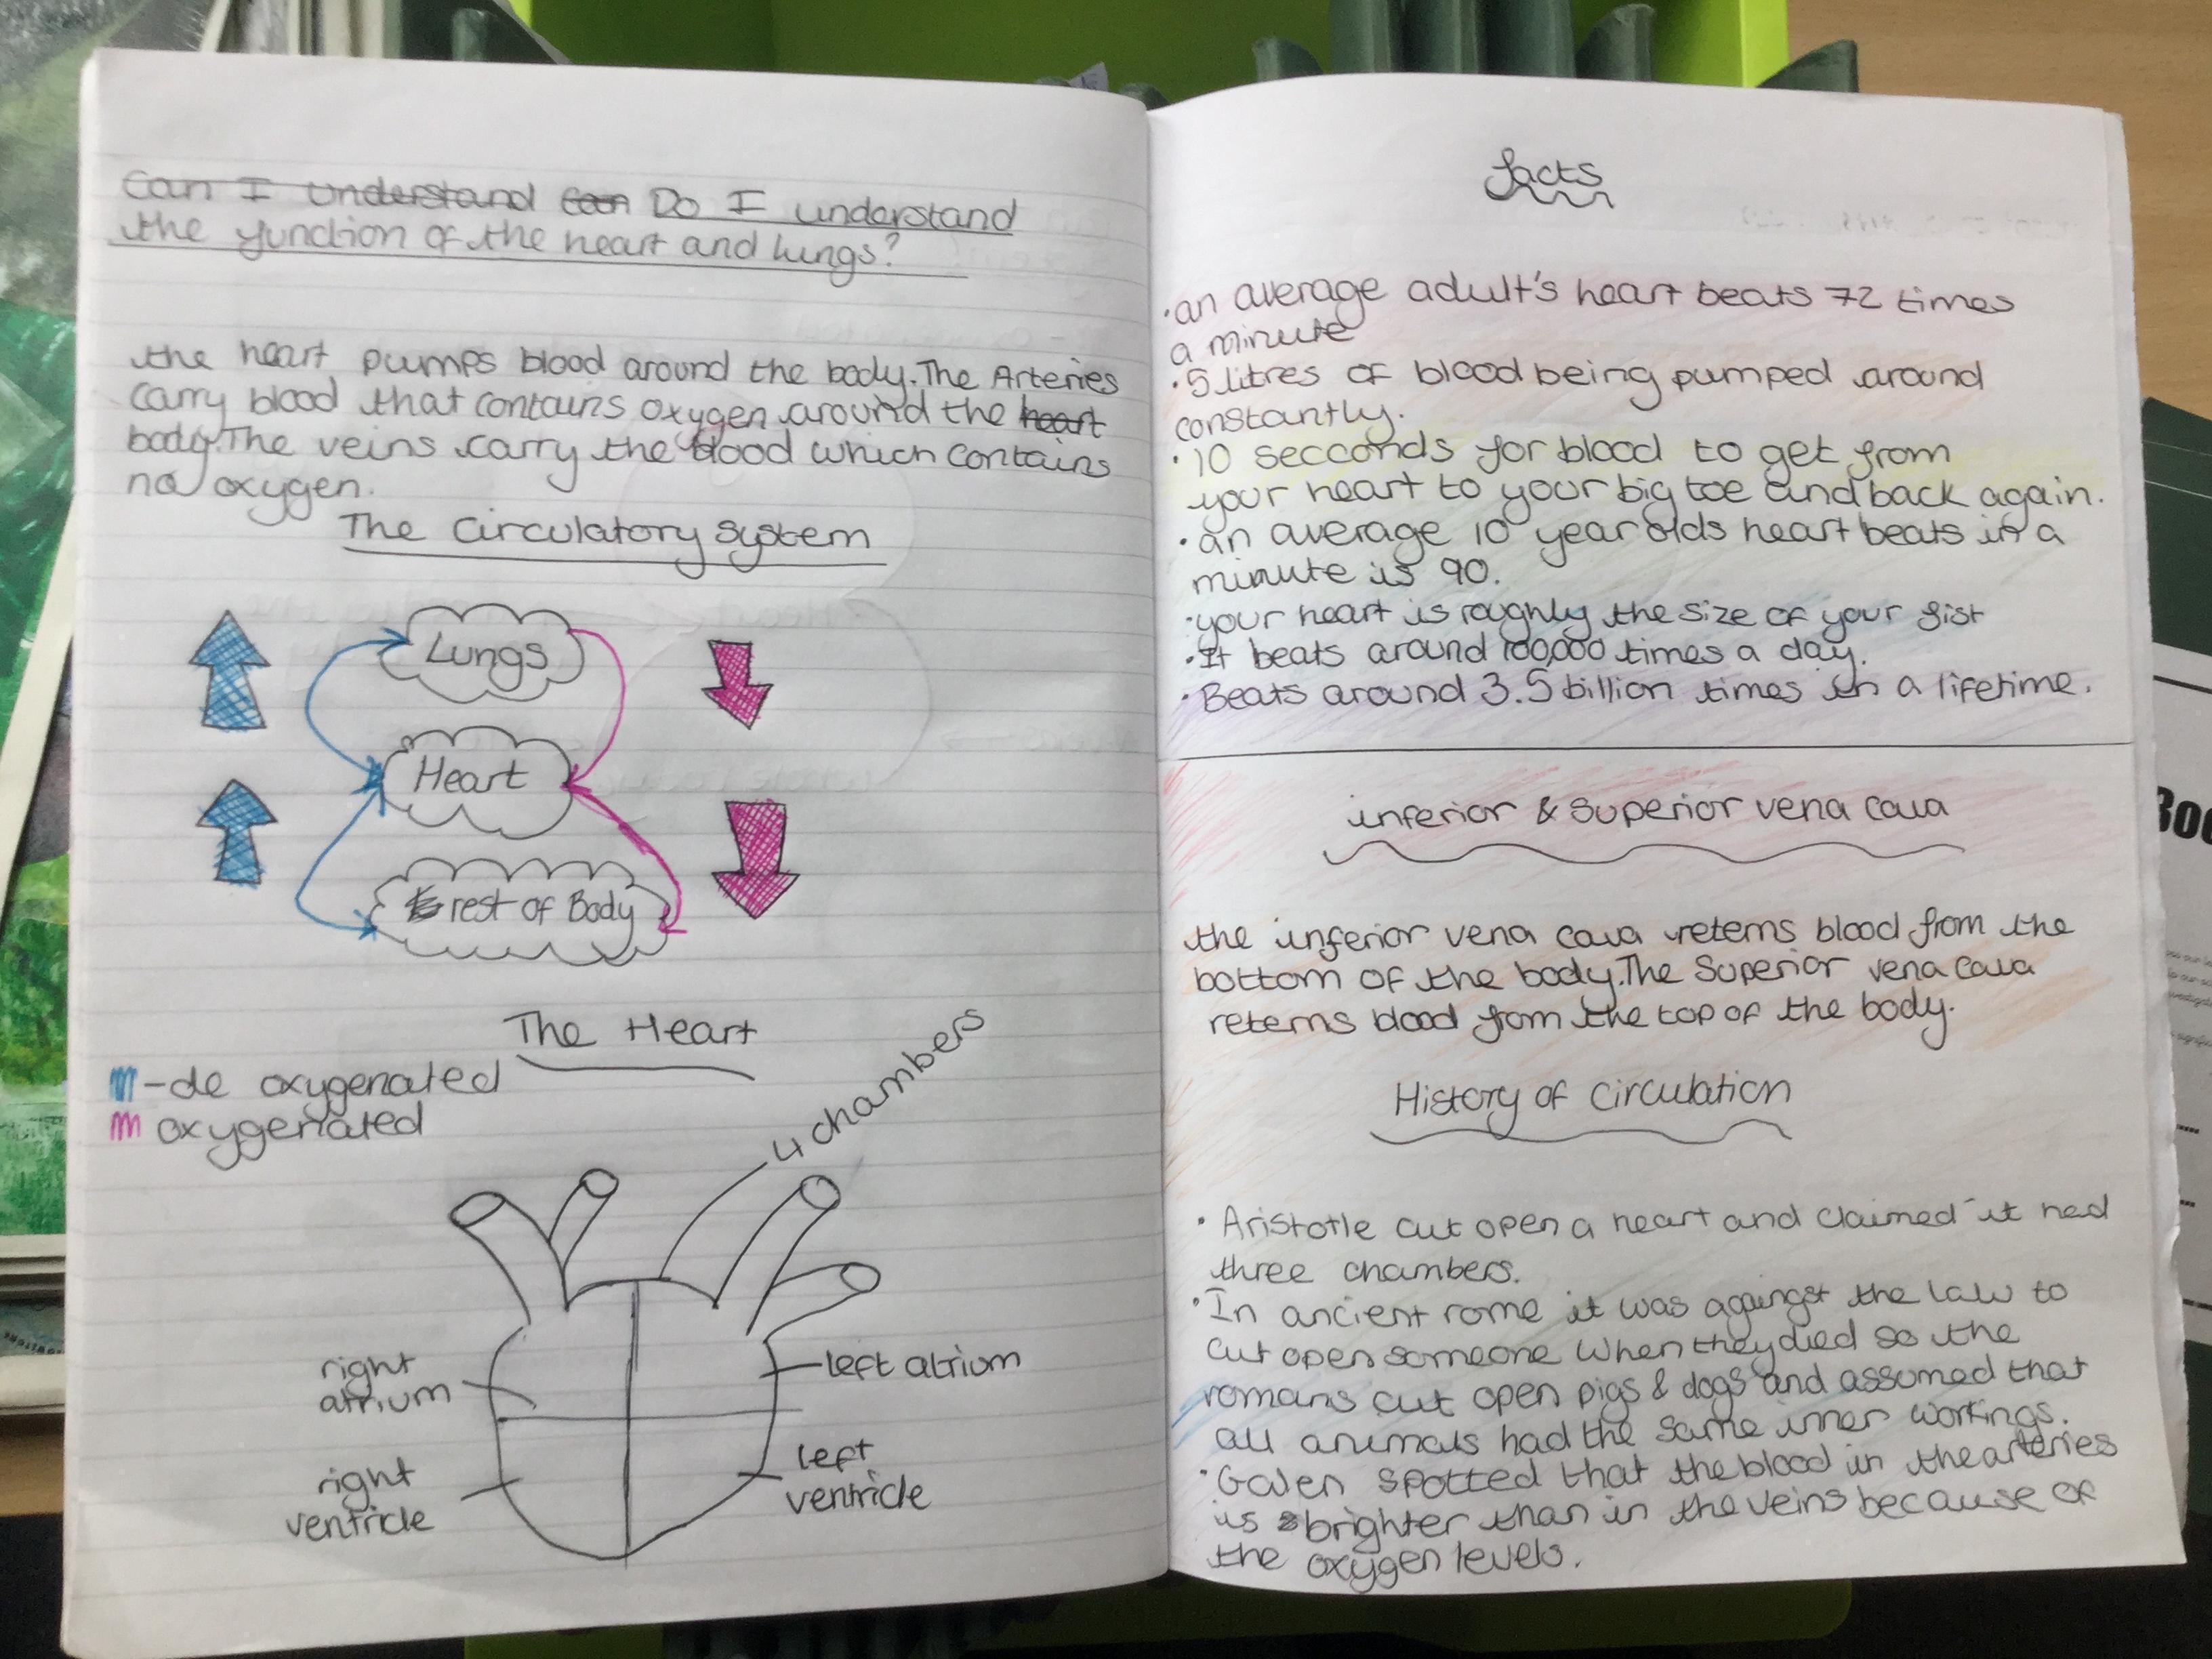 Can I understand Can Do I understand
the function of the heart and lungs?
the heart pumps blood around the body. The Arteries
carry blood that contains oxygen around the heart
body. The veins carry the blood which contains
no oxygen.
The Circulatory System
Lungs
Heart
rest of Body
The Heart
-de oxygenated
oxygenated
4 chambers
right
atrium
left atrium
right
ventricle
left
ventricle
facts
·an average adult's heart beats 72 times
a minute
·5 litres of blood being pumped around
constantly.
·10 secconds for blood to get from
your heart to your big toe and back again.
·an average 10 year olds heart beats in a
minute is 90.
·your heart is roughly the size of your fist
·It beats around 100,000 times a day.
·Beats around 3.5 billion times in a lifetime.
inferior & superior vena cava
the inferior vena cava reterns blood from the
bottom of the body. The Superior vena cava
reterns blood from the top of the body.
History of circulation
· Aristotle cut open a heart and claimed it had
three chambers.
·In ancient rome it was againgst the law to
cut open someone when they died so the
romans cut open pigs & dogs and assumed that
all animals had the same inner workings.
·Galen spotted that the blood in the arteries
is brighter than in the veins because of
the oxygen levels.
Boo